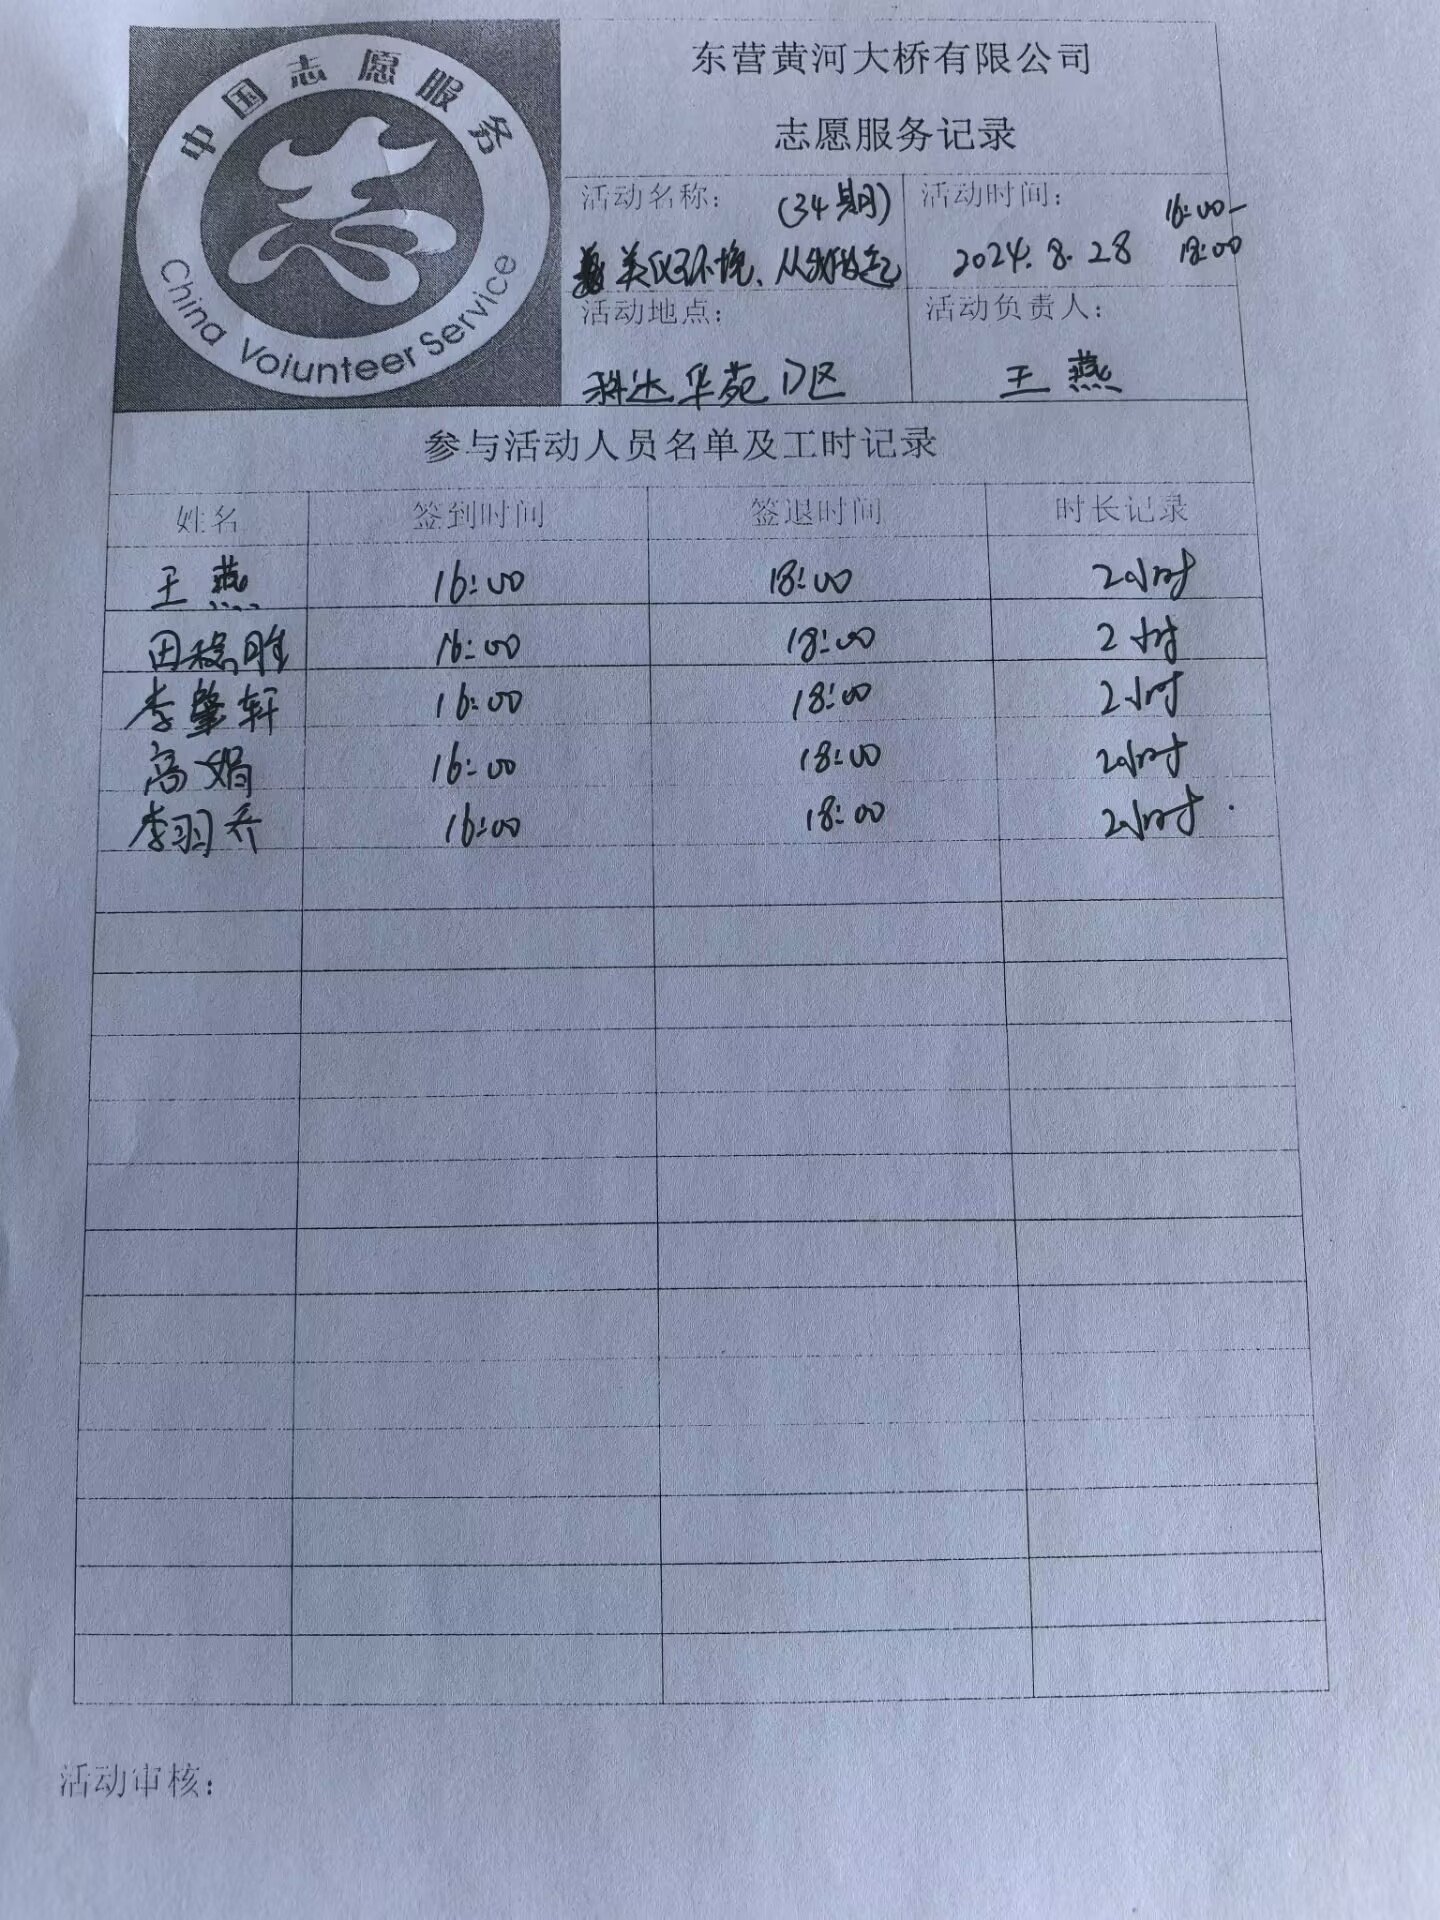 中国志愿服务
China Voiunteer Service
东营黄河大桥有限公司
志愿服务记录
活动名称: (34期)
美化环境、从我做起
活动时间: 16:00-
2024.8.28 18:00
活动地点:
科达华苑D区
活动负责人:
王燕
参与活动人员名单及工时记录
姓名 签到时间 签退时间 时长记录
王燕 16:00 18:00 2小时
田稳胜 16:00 18:00 2小时
李肇轩 16:00 18:00 2小时
高娟 16:00 18:00 2小时
李羽乔 16:00 18:00 2小时.
活动审核: